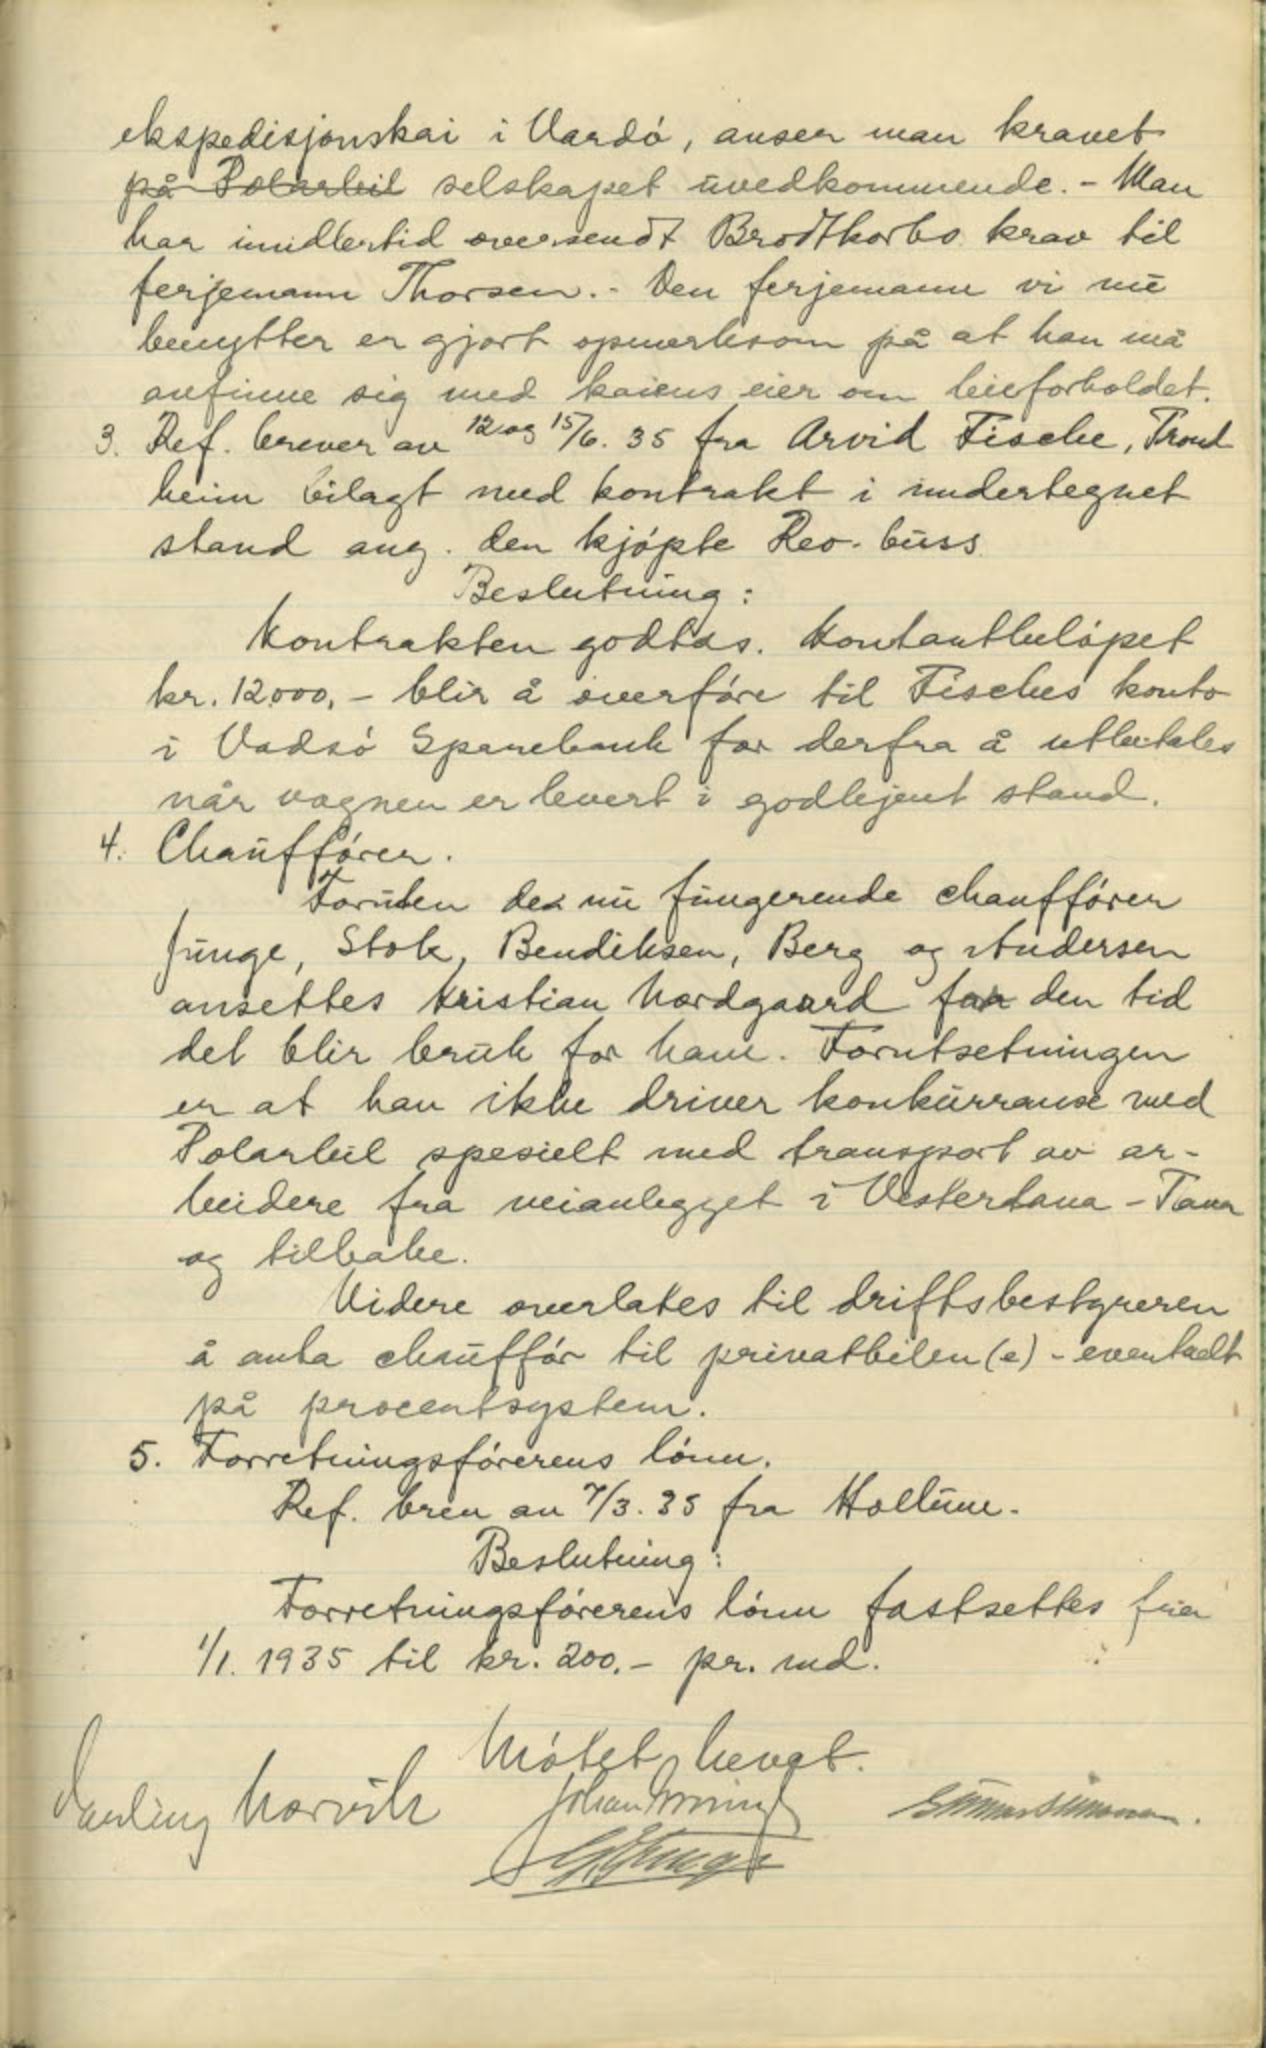 ekspedisjonskai i Vardó, anser man kravet
på Polarbil selskapet uvedkommende. - Man
har imidlertid oversendt Brodtkorbs krav til
ferjemann Thorsen. - Den ferjemann vi nu
benytter er gjort opmerksom på at han må
avfinne sig med kaiens eier om leieforholdet.
3. Ref. brever av 12 og 15/6. 35 fra Arvid Fische, Trond
heim bilagt med kontrakt i undertegnet
stand ang. den kjópte Reo-buss
Beslutning:
Kontrakten godtas. Kontantbelópet
kr. 12000,- blir å overfóre til Fisches konto
i Vadsó Sparebank for derfra å utbetales
når vognen er levert i godkjent stand.
4. Chauffórer.
Foruten de nu fungerende chauffórer
Junge, Stok, Bendiksen, Berg og Andersen
ansettes Kristian Nordgaard for den tid
det blir bruk for ham. Forutsetningen
er at han ikke driver konkurranse med
Polarbil spesielt med transport av ar-
beidere fra veianlegget i Vestertana - Tana
og tilbake.
Videre overlates til driftsbestyreren
å anta chauffór til privatbilen(e) - eventuelt
på procentsystem.
5. Forretningsfórerens lónn.
Ref. brev av 7/3. 35 fra Hollum.
Beslutning:
Forretningsfórerens lónn fastsettes fra
1/1. 1935 til kr. 200.- pr. md.
Mótet hevet.
Narvik Johan